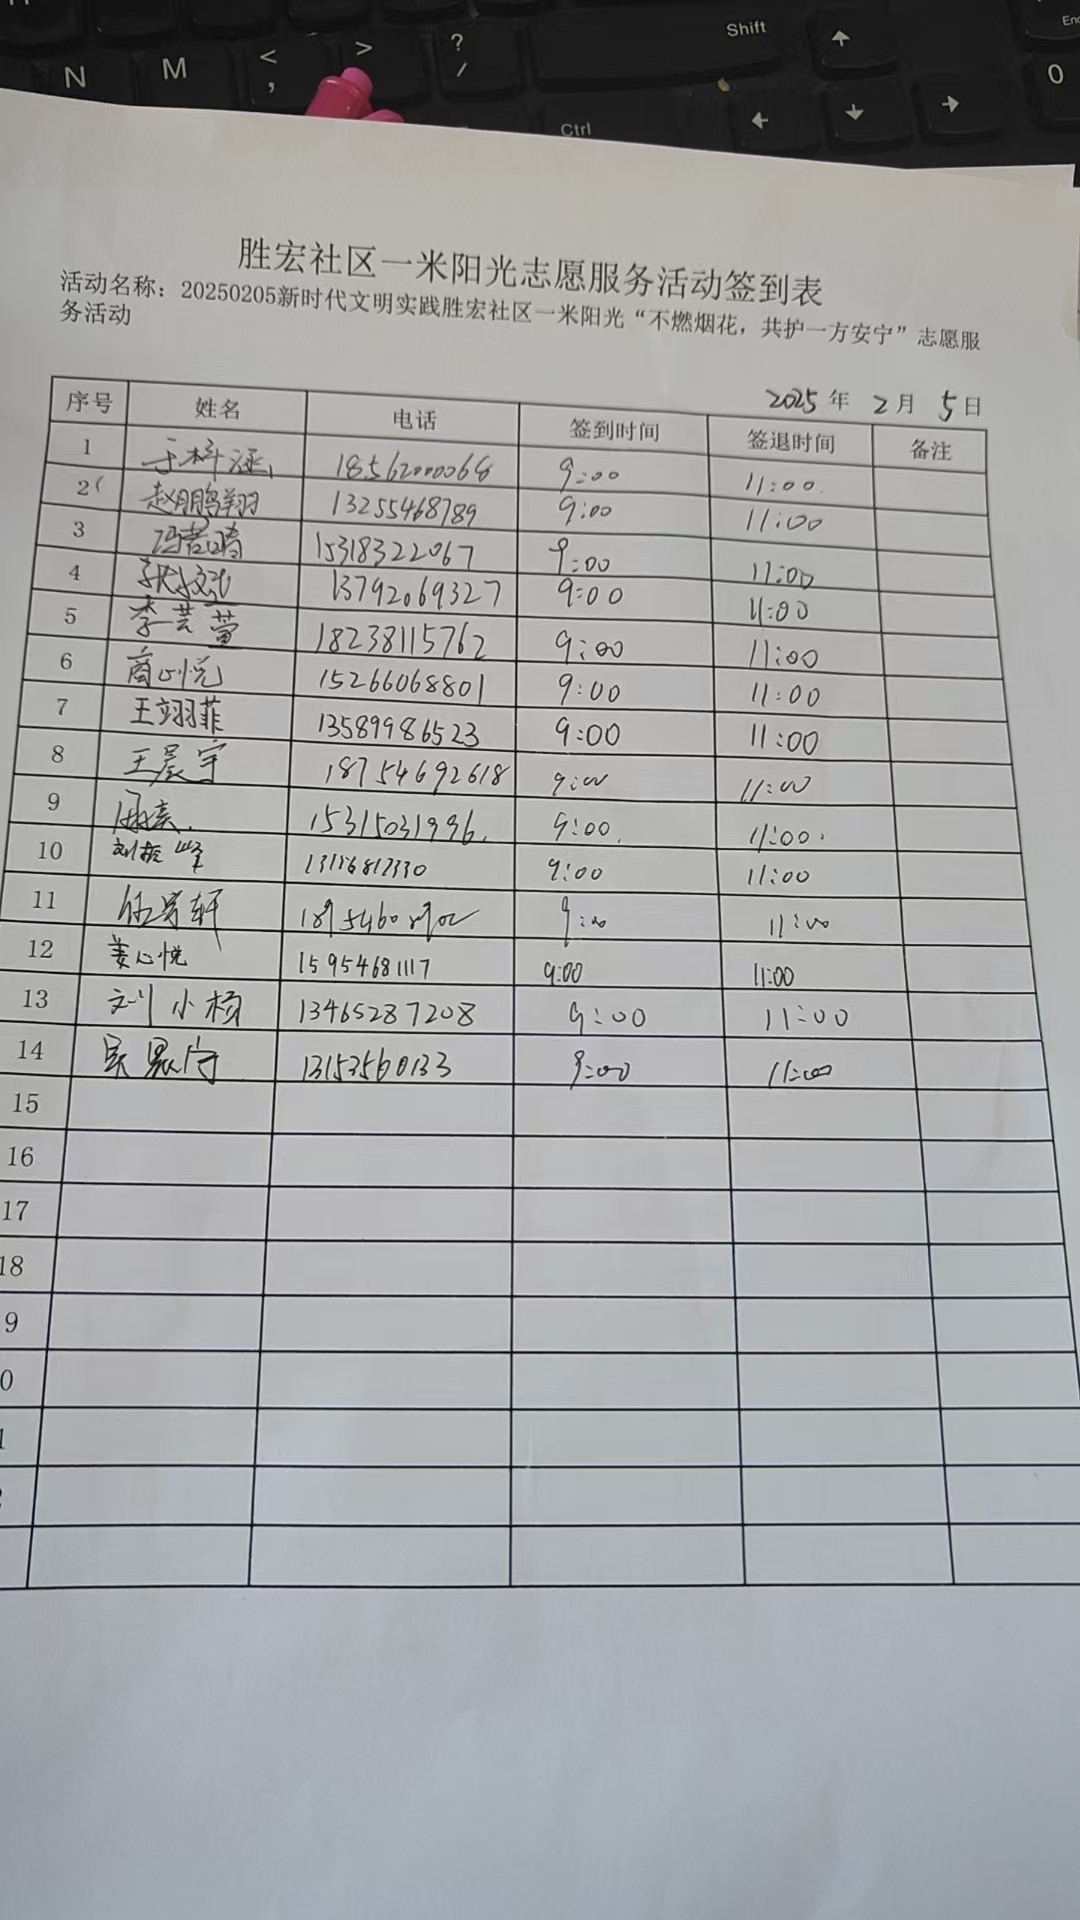 N M < , > ? / Shift ↑ End
Ctrl ← ↓ → 0
胜宏社区一米阳光志愿服务活动签到表
活动名称：20250205新时代文明实践胜宏社区一米阳光“不燃烟花，共护一方安宁”志愿服
务活动
2025年 2月 5日
序号 姓名 电话 签到时间 签退时间 备注
1 于梓涵 18562000068 9:00 11:00
2 赵鹏翔 13255468789 9:00 11:00
3 冯若晴 15318322067 9:00 11:00
4 13792069327 9:00 11:00
5 李芸萱 18238115762 9:00 11:00
6 商心悦 15266068801 9:00 11:00
7 王翊菲 13589986523 9:00 11:00
8 王晨宇 18754692618 9:00 11:00
9 15315031996 9:00 11:00
10 刘振峰 9:00 11:00
11 9:00 11:00
12 姜心悦 15954681117 9:00 11:00
13 刘小杨 13465287208 9:00 11:00
14 13153560133 9:00 11:00
15
16
17
18
9
0
1
2